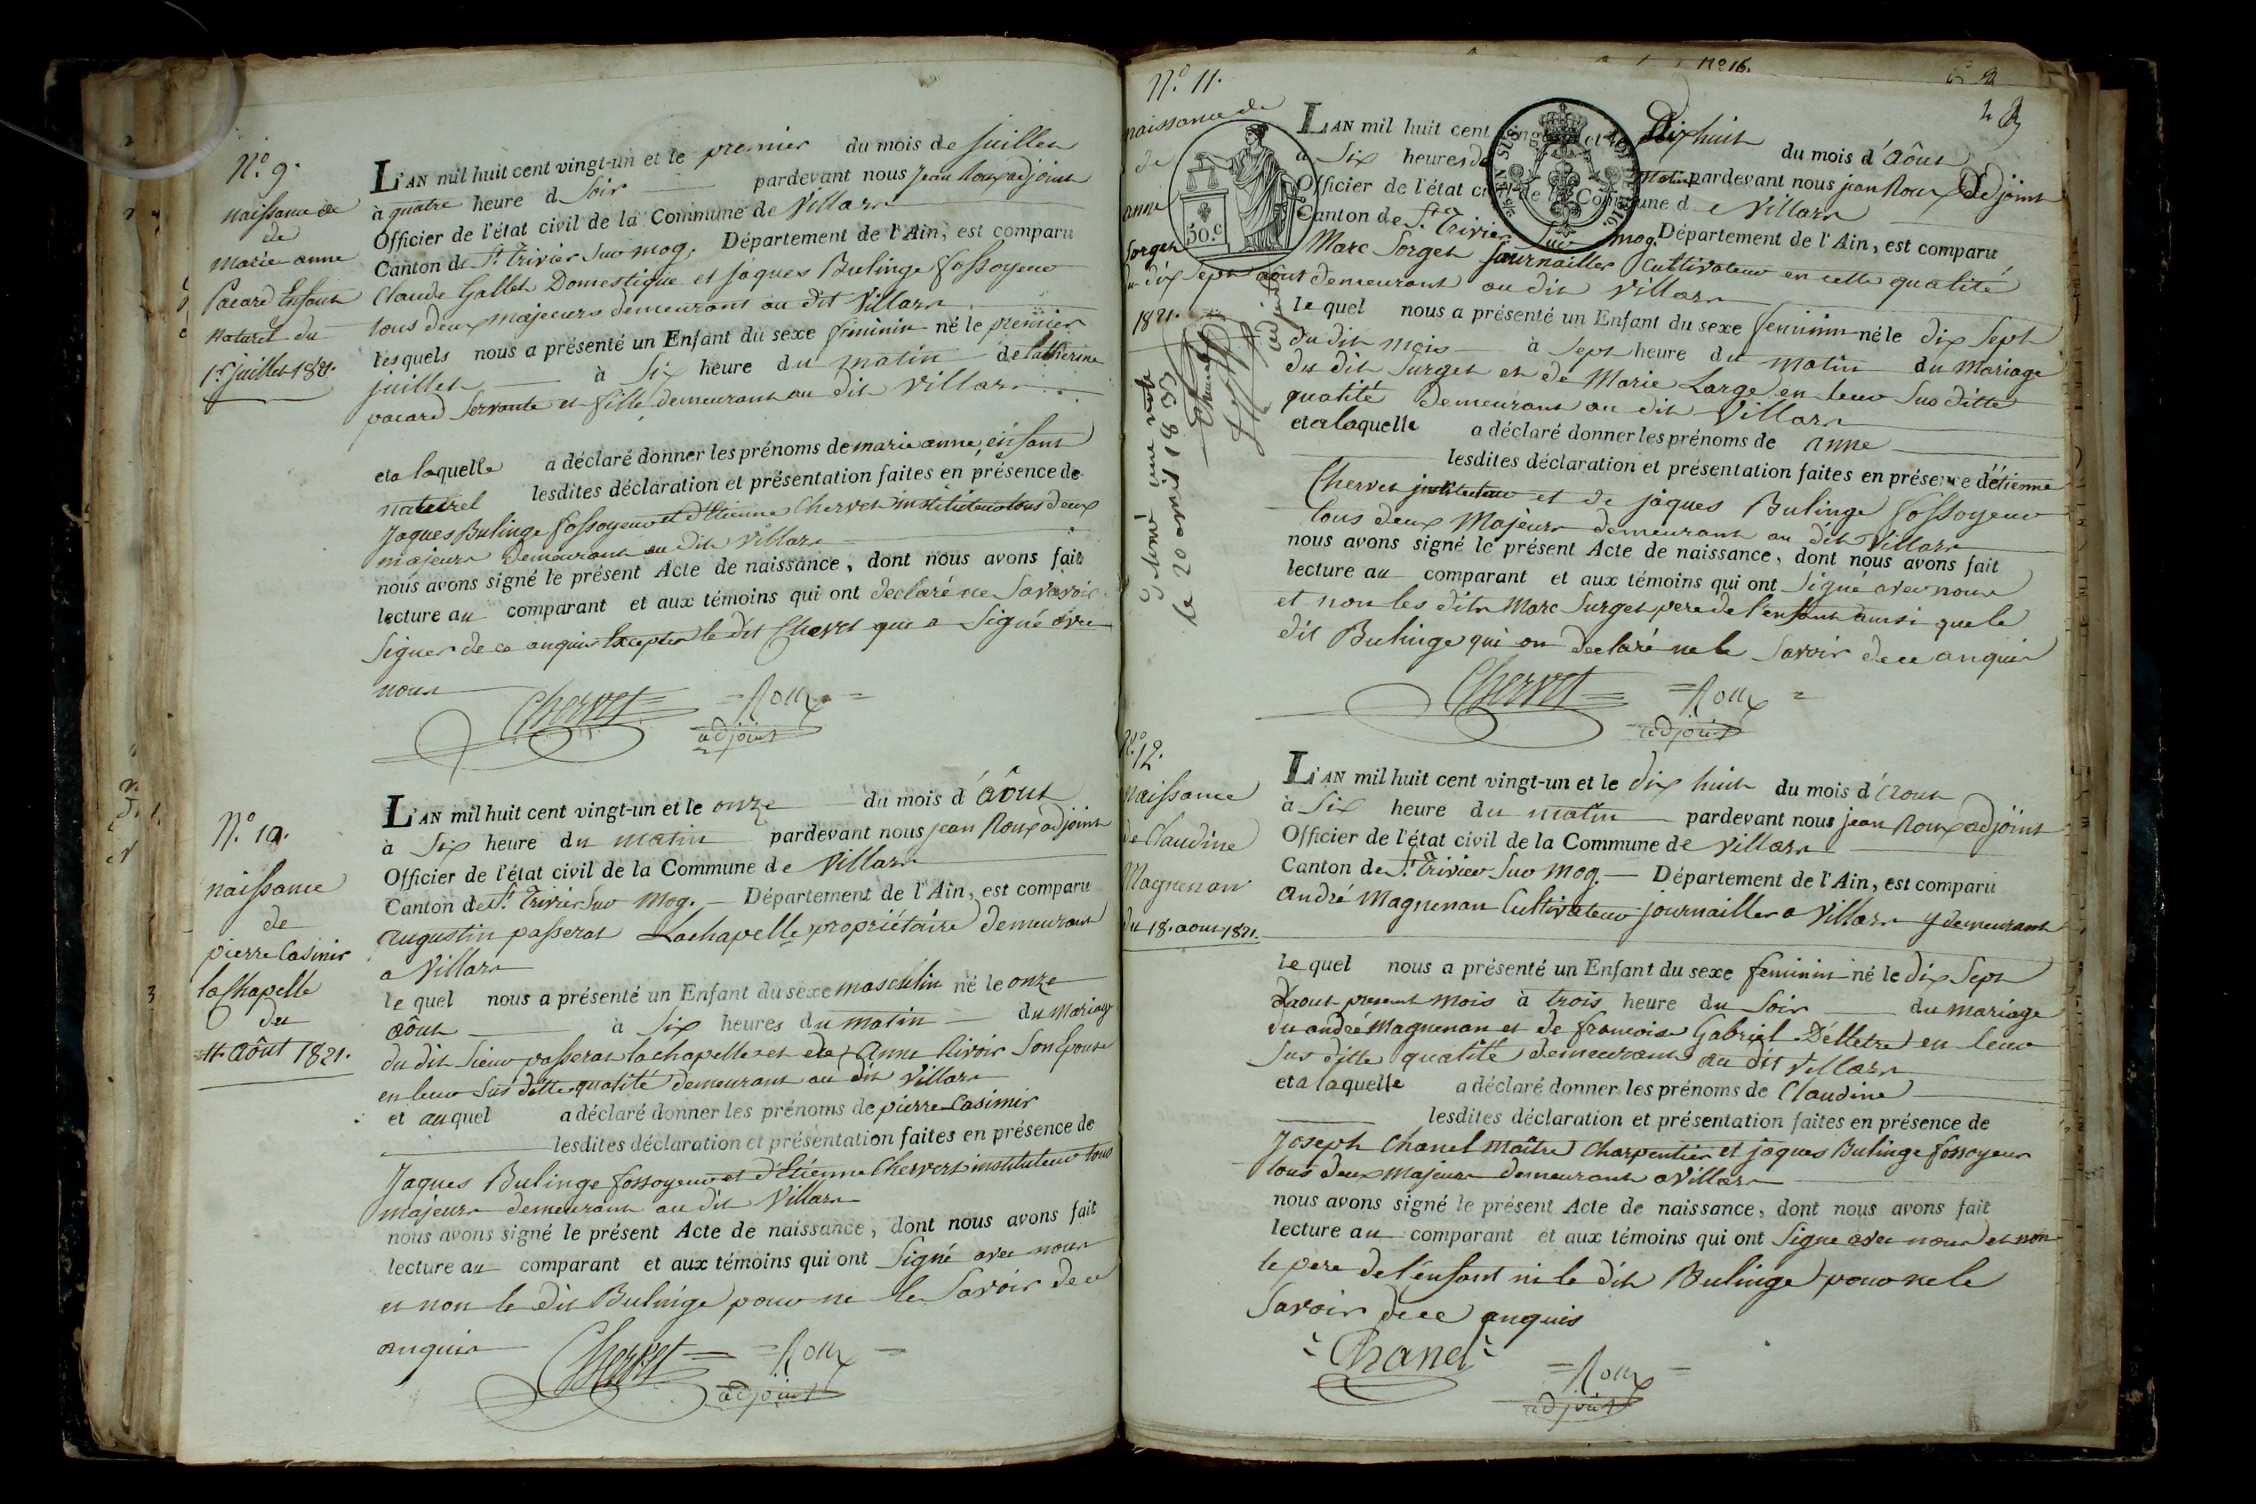 N.° 9.
naissance de
de
marie anne
Pacard Enfant
naturel du
1.er juillet 1821.
L'AN mil huit cent vingt-un et le premier du mois de juillet
à quatre heure d Soir pardevant nous Jean Roux adjoint
Officier de l'état civil de la Commune de Villars
Canton de St. Trivier Sur mog. Département de l'Ain, est comparu
Claude Gallet Domestique et jaques Bulinge fossoyeur
tous deux majeurs demeurant au dit Villars
lesquels nous a présenté un Enfant du sexe feminin né le premier
juillet à Six heure du matin de Catherine
pacard Servante et fille demeurant au dit Villars
et a laquelle a déclaré donner les prénoms de marie anne, enfant
naturel lesdites déclaration et présentation faites en présence de
Jaques Bulinge fossoyeur et d'Etienne Chervet instituteur tous deux
majeurs demeurant au dit Villars
nous avons signé le présent Acte de naissance, dont nous avons fait
lecture au comparant et aux témoins qui ont declaré ne Savavoir
Signer de ce anquis Excepter le dit Chervet qui a Signé avec
nous
Chervet = Roux =
adjoint
N.° 10.
naissance
de
pierre Casimir
lachapelle
du
11 août 1821.
L'AN mil huit cent vingt-un et le onze du mois d'août
à Six heure du matin pardevant nous jean Roux adjoint
Officier de l'état civil de la Commune de Villars
Canton de St. Trivier Sur Mog. Département de l'Ain, est comparu
augustin passerat Lachapelle propriétaire demeurant
a Villars
le quel nous a présenté un Enfant du sexe masculin né le onze
août à Six heures du matin du Mariage
du dit Sieur passerat lachapelle et de anne Rivoir Son Epouse
en leur Sus ditte qualité demeurant au dit Villars
et auquel a déclaré donner les prénoms de pierre Casimir
lesdites déclaration et présentation faites en présence de
Jaques Bulinge fossoyeur et d'Etienne Chervet instituteur tous
majeurs demeurant au dit Villars
nous avons signé le présent Acte de naissance, dont nous avons fait
lecture au comparant et aux témoins qui ont Signé avec nous
et non le dit Bulinge pour ne le Savoir de ce
anquis
Chervet = Roux =
adjoint
N° 16.
N.° 11.
naissance de
de
anne
Sorget
du dix Sept août
1821.
50.c
L'AN mil huit cent vingt-un et le Dix huit du mois d'Août
à Six heures du matin pardevant nous jean Roux Adjoint
Officier de l'état civil de la Commune d e Villars
Canton de St. Trivier Sur mog. Département de l'Ain, est comparu
Marc Sorget Journaillier Cultivateur en cette qualité
demeurant au dit Villars
le quel nous a présenté un Enfant du sexe feminin né le dix Sept
du dit mois à Sept heure du matin du Mariage
du dit Surget et de Marie Large en leur Sus ditte
qualité demeurant au dit Villars
et a laquelle a déclaré donner les prénoms de anne
lesdites déclaration et présentation faites en présence d'étienne
Chervet instituteur et de jaques Bulinge fossoyeur
tous deux Majeurs demeurant au dit Villars
nous avons signé le présent Acte de naissance, dont nous avons fait
lecture au comparant et aux témoins qui ont Signé avec nous
et non les dits Marc Surget pere de l'enfant ainsi que le
dit Bulinge qui on declaré ne le Savoir de ce anquis
Chervet = Roux =
adjoint
le 20 avril 1853
N.° 12.
Naissance
de Claudine
Magnenan
du 18. aout 1821.
L'AN mil huit cent vingt-un et le dix huit du mois d'Aout
à Six heure du matin pardevant nous jean Roux adjoint
Officier de l'état civil de la Commune de Villars
Canton de St. Trivier Sur Mog. Département de l'Ain, est comparu
andré Magnenan Cultivateur journaillier a Villars y demeurant
le quel nous a présenté un Enfant du sexe feminin né le dix Sept
d'aout present mois à trois heure du Soir du mariage
du andré Magnenan et de francoise Gabriel Délletre en leur
Sus ditte qualité demeurant au dit Villars
et a laquelle a déclaré donner les prénoms de Claudine
lesdites déclaration et présentation faites en présence de
Joseph Chanel Maître Charpentier et jaques Bulinge fossoyeur
tous deux Majeurs demeurant a Villars
nous avons signé le présent Acte de naissance, dont nous avons fait
lecture au comparant et aux témoins qui ont Signe avec nous et non
le pere de l'enfant ni le dit Bulinge pour ne le
Savoir de ce anquis
Chanel = Roux =
adjoint